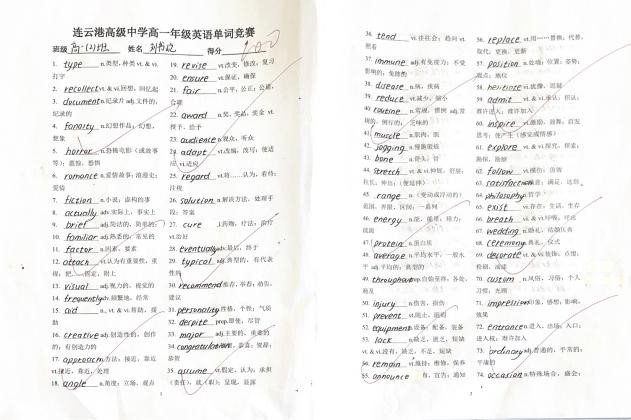 连云港高级中学高一年级英语单词竞赛
班级 高一(2)班 姓名 得分
1. type n.类型,种类 vt. & vi.
打字
2. recollect vt. & vi.回想,回忆起
3. document n.纪录片 adj.文件的,
纪录的
4. fantasy n.幻想作品;幻想,
想象
5. horror n.恐怖电影(或故事
等);震惊,恐惧
6. romance n.爱情故事;浪漫史;
爱情
7. fiction n.小说;虚构的事
8. actually adv.实际上,事实上
9. brief adj.简洁的,简单的;
10. familiar adj.熟悉的;常见的
11. factor n.因素,要素
12. attach vt.认为有重要性,重
视;把…固定,附上
13. visual adj.视力的,视觉的
14. frequently adv.频繁地,经常
15. aid n., vt. & vi.帮助,援
助
16. creative adj.创造性的,创作
的;有创造力的
17. approach n.方法;接近,靠近
vt.接近,靠近;处理
18. angle n.角度;立场,观点
19. revise vt.改变,修改;复习
20. ensure vt.保证,确保
21. fair adj.公平,公正;公道,
合理
22. award n.奖,奖品,奖金 vt.
授予,给予
23. audience n.观众,听众
24. adapt vt.改编,改写;使适
应 vi.适应
25. regard vt.将……认为,看待;
注视
26. solution n.解决方法,处理手
段;答案
27. cure n.药物,疗法;治疗
vt.治好
28. eventually adv.最后,终于
29. typical adj.典型的,有代表
性的
30. recommend 推荐,举荐;劝告,
建议
31. personality 性格,个性;气质
32. despite prep.即使,尽管
33. major adj.主要的,重要的
34. congratulation n.恭喜;贺辞,
35. assume vt.假定,认为;承担
(责任),就(职);呈现,显露
1
36. tend vi.往往会;趋向 vt.
照看
37. immune adj.有免疫力;不受
影响的;免除的
38. disease n.病,疾病
39. reduce vt.减少,缩小
40. routine n.常规,惯例 adj.常
规的,例行的;乏味的
41. muscle n.肌肉,肌
42. jogging n.慢跑锻炼
43. bone n.骨头,骨
44. stretch vt. & vi.伸展,舒展;
拉长;伸出;(使延伸)
45. range n.(变动或浮动的)
范围,界限,区间;一系列
46. energy n.能,能量;精力,
活力
47. protein n.蛋白质
48. average n.平均水平,一般水
平 adj.平均的;典型的
49. throughout prep.自始至终;各处,
遍及
50. injury n.伤害,损伤
51. prevent vt.阻止,阻碍
52. equipment n.设备;配备,装备
53. lack n.缺乏,匮乏,短缺
vt. & vi.没有,缺乏,不足,短缺
54. remain vt.维持;维修,保养
55. announce 布,宣告;通知
56. replace vt.用……替换;代替,
取代;更换,更新
57. position n.处境;位置;姿势;
观点;地位
58. hesitate vi.犹豫,迟疑
59. admit vt. & vi.承认;招认;
准许进入;准许加入
60. inspire vt.激励,鼓舞;启发
思考;使产生(感觉或情感)
61. explore vt. & vi.探究,探索;
勘探,勘察
62. follow vt.模仿;仿效
63. satisfaction n.满意;满足,达到
64. philosophy n.哲学
65. exist vi.存在;生活,生存
66. breath vt. & vi.呼吸;呼出
67. wedding n.婚礼,结婚庆典
68. ceremony n.典礼,仪式
69. decorate vt. & vi.装饰;点缀;
粉刷,油漆
70. custom n.风俗,习俗;个人
习惯;光顾
71. impression 印象,感想;影响,
效果
72. entrance n.进入,出场;入口;
进入权;准许加入
73. ordinary adj.普通的,平常的;
平庸的
74. occasion n.特殊场合,盛会;
2